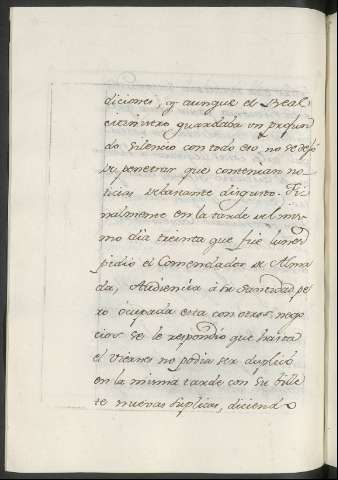 diciones, y aunque el Real
ministero guardaba un profun
do silencio con todo eso, no se dejó
de penetrar que contenian no
ticias de bastante disgusto. Fi
nalmente en la tarde del mis
mo dia treinta que fue lunes
pidio el Comendador de Alma
da, Audiencia á su Santidad pe
ro ocupada esta con otros nego
cios se le respondio que hasta
el Viernes no podia ser duplicó
en la misma tarde con su bille
te nuevas suplicas, diciendo